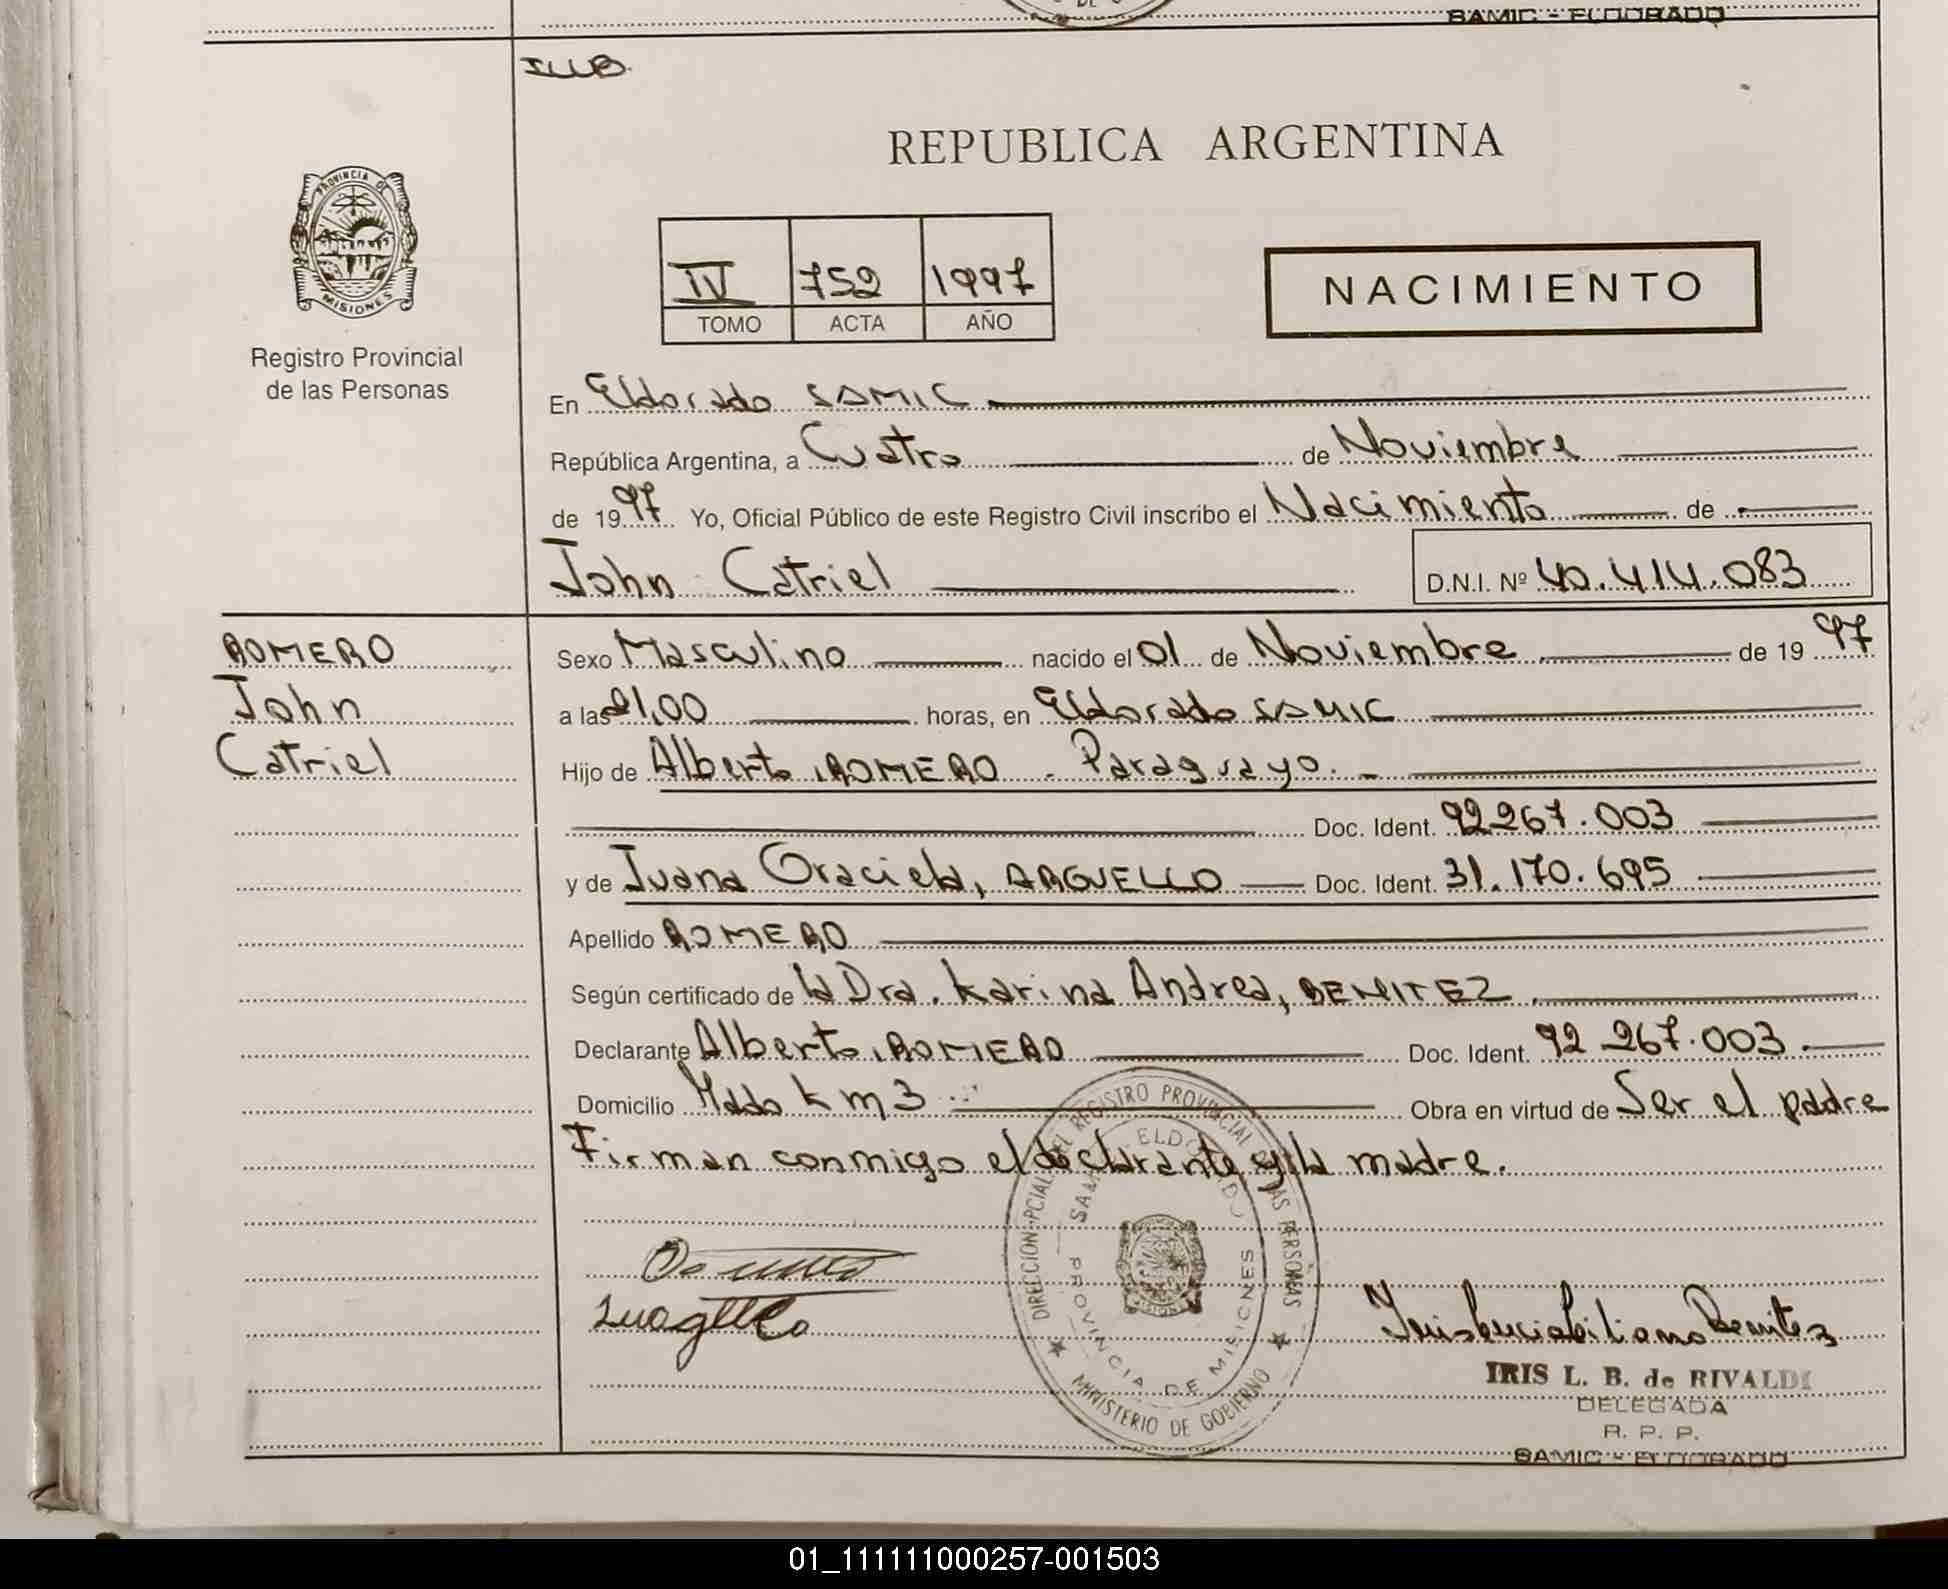 SAMIC - ELDORADO
REPUBLICA ARGENTINA
PROVINCIA DE MISIONES
Registro Provincial
de las Personas
IV 752 1997
TOMO ACTA AÑO
NACIMIENTO
En Eldorado SAMIC
República Argentina, a Cuatro de Noviembre
de 1997 Yo, Oficial Público de este Registro Civil inscribo el Nacimiento de
John Catriel D.N.I. Nº 40.414.083
ROMERO
John
Catriel
Sexo Masculino nacido el 01 de Noviembre de 1997
a las 21,00 horas, en Eldorado SAMIC
Hijo de Alberto, ROMERO - Paraguayo. -
Doc. Ident. 92.267.003
y de Juana Graciela, ARGUELLO Doc. Ident. 31.170.695
Apellido ROMERO
Según certificado de la Dra. Karina Andrea, BENITEZ
Declarante Alberto, ROMERO Doc. Ident. 92.267.003.
Domicilio Mado Km 3 Obra en virtud de Ser el padre
Firman conmigo el declarante y la madre.
DIRECCION PCIAL. DEL REGISTRO PROVINCIAL DE LAS PERSONAS
MINISTERIO DE GOBIERNO
SAMIC - ELDORADO
PROVINCIA DE MISIONES
IRIS L. B. de RIVALDI
DELEGADA
R. P. P.
SAMIC - ELDORADO
01_111111000257-001503